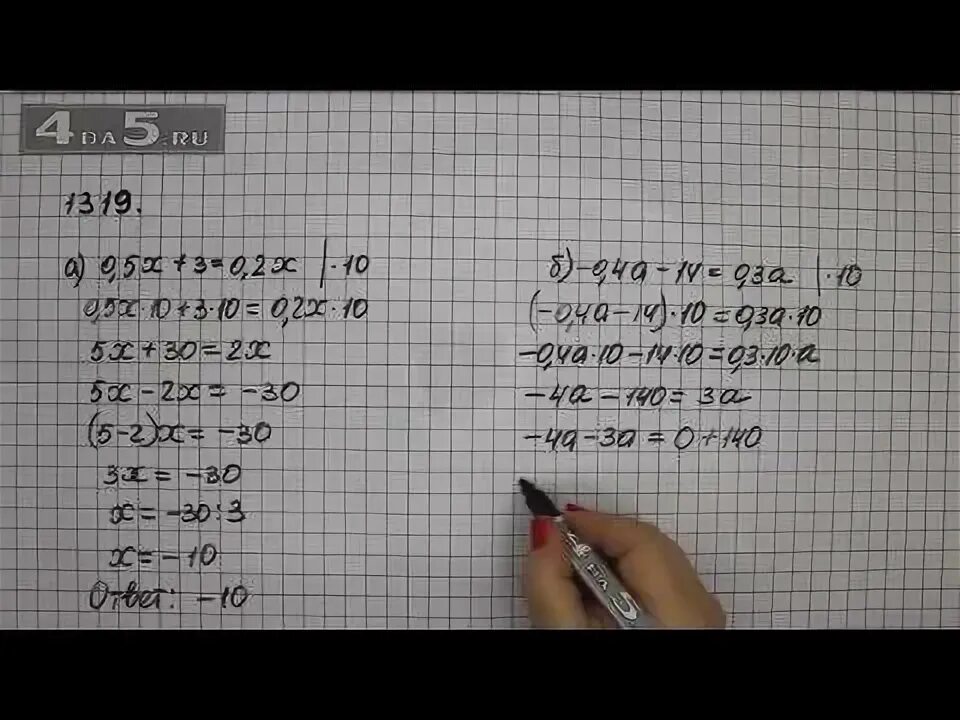 4 DA 5.RU
1319.
а) 0,5x + 3 = 0,2x | · 10
0,5x · 10 + 3 · 10 = 0,2x · 10
5x + 30 = 2x
5x - 2x = -30
(5-2)x = -30
3x = -30
x = -30 : 3
x = -10
Ответ: -10
б) -0,4a - 14 = 0,3a | · 10
(-0,4a - 14) · 10 = 0,3a · 10
-0,4a · 10 - 14 · 10 = 0,3 · 10 · a
-4a - 140 = 3a
-4a - 3a = 0 + 140